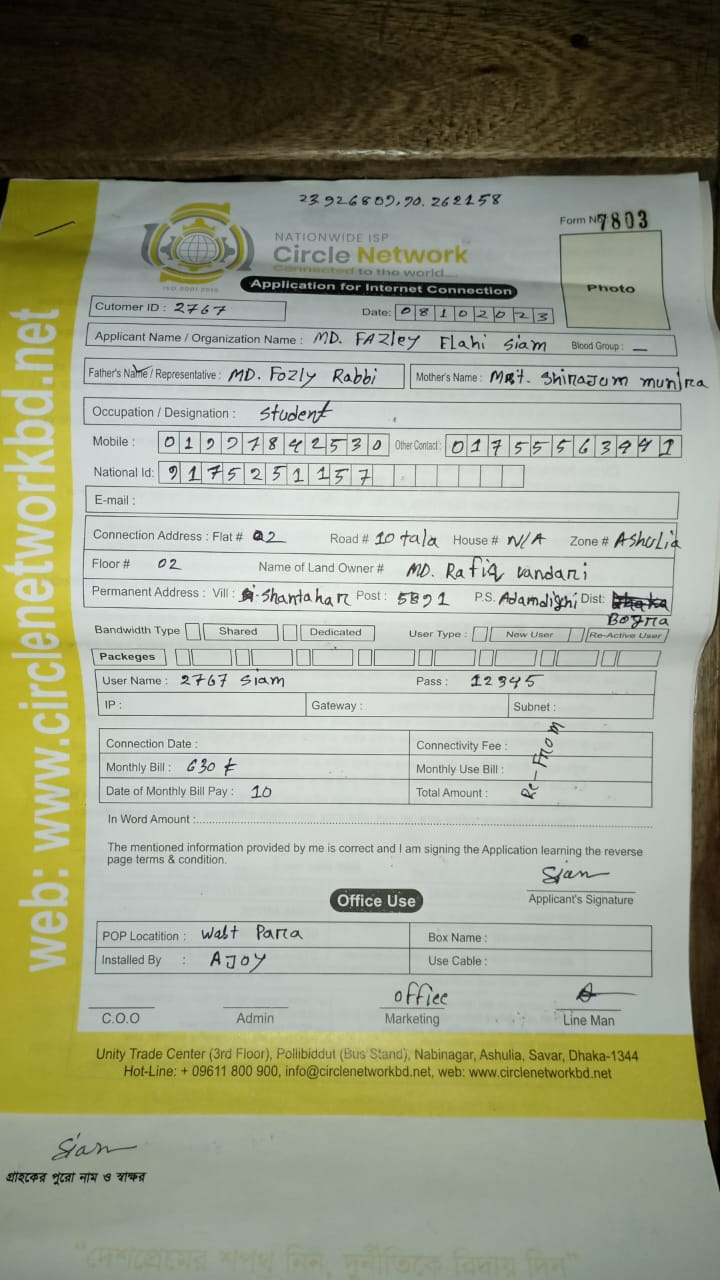 23.926809,90.262158
Form No 7803
NATIONWIDE ISP
Circle Network
Connected to the world....
ISO 9001:2015
Photo
Application for Internet Connection
Cutomer ID : 2767
Date: 08102023
Applicant Name / Organization Name : MD. FAZley Elahi Siam
Blood Group : —
Father's Name / Representative : MD. Fozly Rabbi
Mother's Name : Mst. Shirajum munira
Occupation / Designation : Student
Mobile : 01997842530 Other Contact : 01755563441
National Id: 9175251157
E-mail :
Connection Address : Flat # 02 Road # 10 tala House # N/A Zone # Ashulia
Floor # 02 Name of Land Owner # MD. Rafiq vandari
Permanent Address : Vill : Shantahar Post : 5891 P.S. Adamdighi Dist: Bogra
Bandwidth Type Shared Dedicated User Type : New User Re-Active User
Packeges
User Name : 2767 Siam Pass : 12345
IP : Gateway : Subnet :
Connection Date : Connectivity Fee :
Monthly Bill : 630 ৳ Monthly Use Bill :
Date of Monthly Bill Pay : 10 Total Amount :
Re-From
In Word Amount :
The mentioned information provided by me is correct and I am signing the Application learning the reverse
page terms & condition.
Siam
Applicant's Signature
Office Use
POP Locatition : Walt Parra Box Name :
Installed By : AJOY Use Cable :
office
C.O.O Admin Marketing Line Man
Unity Trade Center (3rd Floor), Pollibiddut (Bus Stand), Nabinagar, Ashulia, Savar, Dhaka-1344
Hot-Line: + 09611 800 900, info@circlenetworkbd.net, web: www.circlenetworkbd.net
web: www.circlenetworkbd.net
Siam
গ্রাহকের পুরো নাম ও স্বাক্ষর
"দেশপ্রেমের শপথ নিন, দুর্নীতিকে বিদায় দিন"